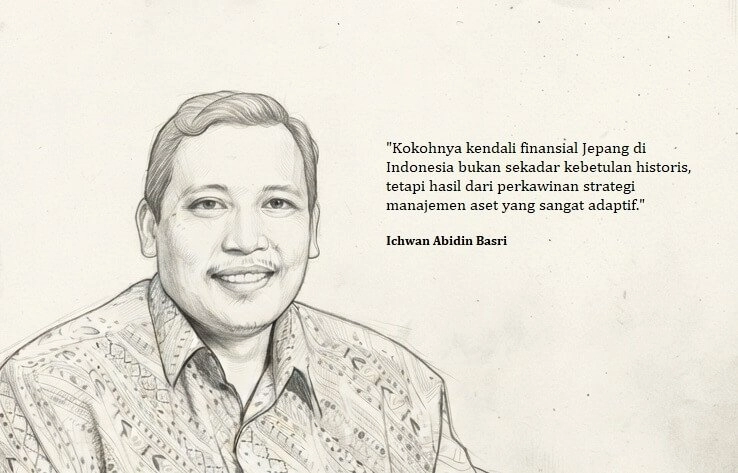 "Kokohnya kendali finansial Jepang di
Indonesia bukan sekadar kebetulan historis,
tetapi hasil dari perkawinan strategi
manajemen aset yang sangat adaptif."
Ichwan Abidin Basri